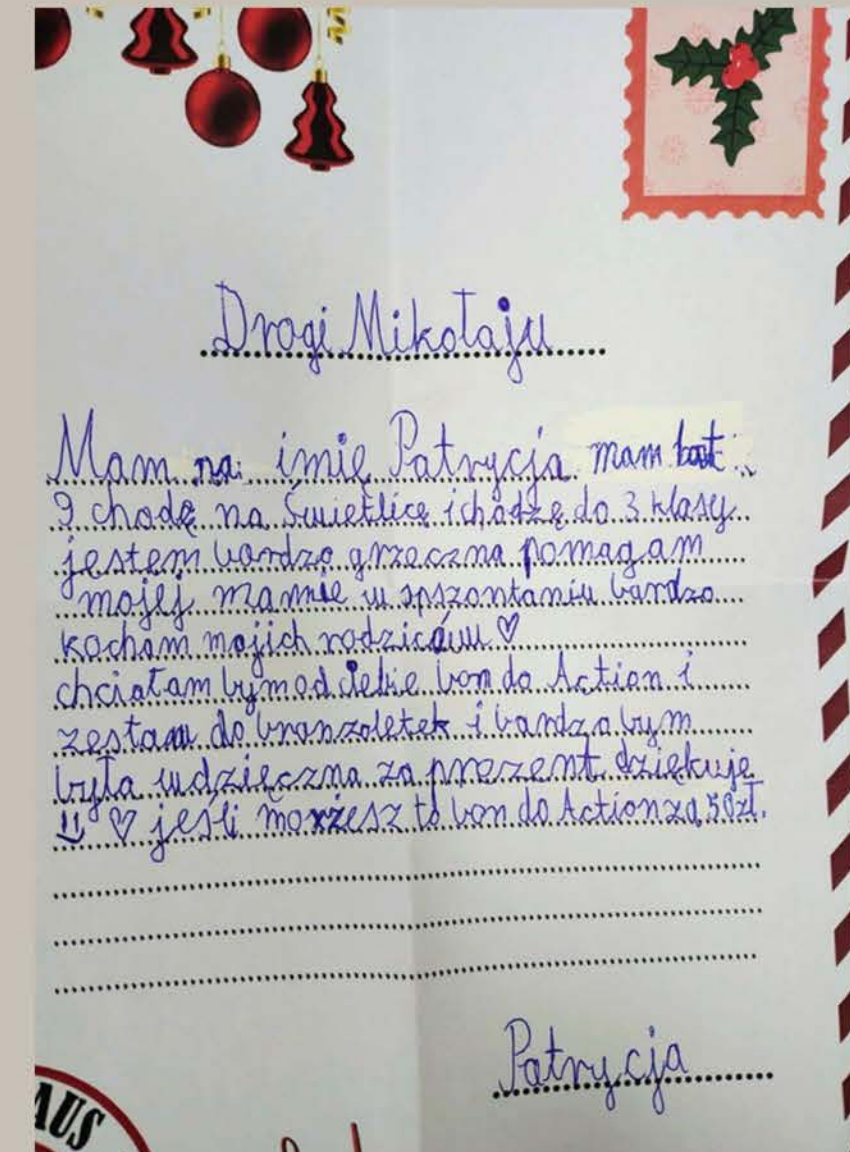 Drogi Mikołaju
Mam na imię Patrycja mam lat
9 chodę na Świetlicę i chodzę do 3 klasy
jestem bardzo grzeczna pomagam
mojej mamie w spszontaniu bardzo
kocham mojich rodzicóww ♡
chciałam bym od ciebie bon do Action i
zestaw do branzoletek i bardzo bym
była wdzięczna za prezent dziękuję
♡ jeśli morzesz to bon do Action za 50zł.
Patrycja
AUS